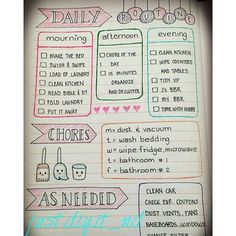 DAILY ROUTINE
mourning
MAKE THE BED
SWISH & SWIPE
LOAD OF LAUNDRY
CLEAN KITCHEN
READ BIBLE & DT
FOLD LAUNDRY
PUT IT AWAY
afternoon
CHORE OF THE
DAY
15 MINUTES
ORGANIZE
AND DECLUTTER
evening
CLEAN KITCHEN
WIPE COUNTERS
AND TABLES
TIDY UP
J's BBR
BBR
TIME WITH HUBBY
CHORES
m= dust & vacuum
t= wash bedding
w= wipe fridge, microwave
t= bathroom #1
f= bathroom #2
AS NEEDED
CLEAN CAR
CHECK EXP. COUPONS
DUST VENTS, FANS
BASEBOARDS, WINDOWS
CHANGE FILTER
just.diy.it